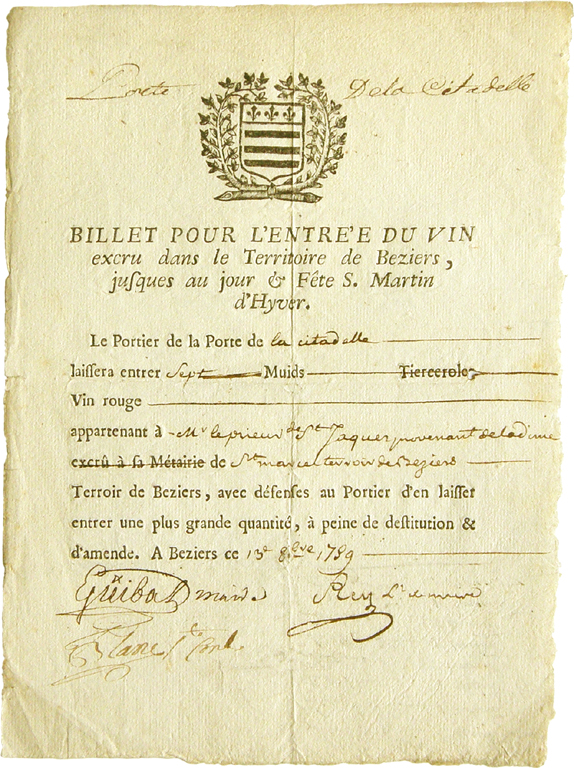 Porte De la Citadelle
BILLET POUR L'ENTRE'E DU VIN
excru dans le Territoire de Beziers,
juſques au jour & Fête S. Martin
d'Hyver.
Le Portier de la Porte de la citadelle
laiſſera entrer Sept Muids Tiercerole
Vin rouge
appartenant à Mr le prieur de St Jaques provenant de la dime
excrû à sa Métairie de
Terroir de Beziers, avec défenſes au Portier d'en laiſſer
entrer une plus grande quantité, à peine de deſtitution &
d'amende. A Beziers ce 13e 8bre 1789
Guibal maire Rey Lt de maire